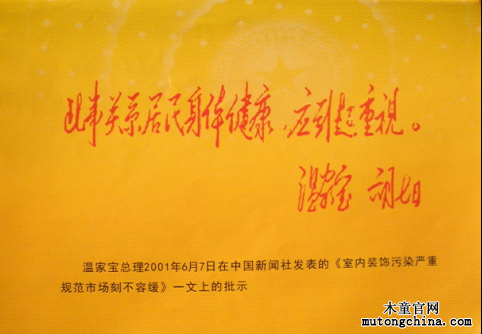 此事关系居民身体健康，应引起重视。
温家宝 六月七日
温家宝总理2001年6月7日在中国新闻社发表的《室内装饰污染严重
规范市场刻不容缓》一文上的批示
木童官网
mutongchina.com